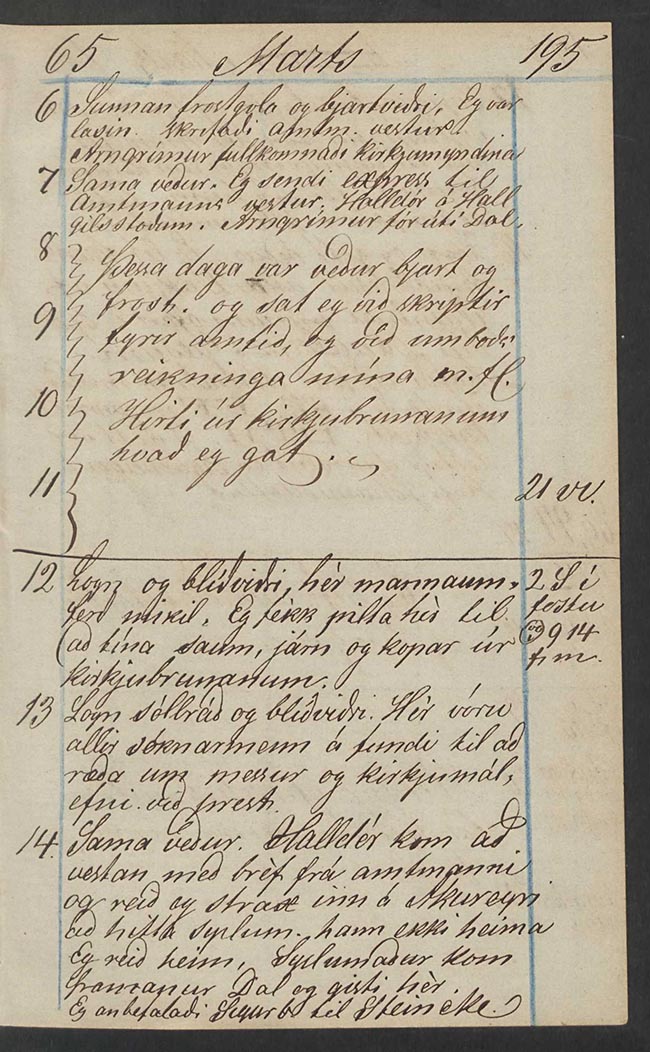 65 Marts 195
6 Sunnan frostgola og bjartviðri. Eg var
lasin. skrifaði amtm. vestur.
Arngrímur fullkomnaði kirkjumyndina
7 Sama veður. Eg sendi express til
Amtmanns vestur. Halldór á Hall
gilsstöðum. Arngrímur fór útí Dal.
8 Þessa daga var veður bjart og
9 frost. og sat eg við skriptir
fyrir amtið, og við umboðs
reikninga mína m. fl.
10 Hirti úr kirkjubrunanum
hvað eg gat.
11 21 vv.
12 Logn og blíðviðri, hér mannaum-
ferð mikil. Eg fékk pilta hér til
að tína saum, járn og kopar úr
kirkjubrunanum.
2 S í
föstu
9 14
f. m.
13 Logn sólbráð og blíðviðri. Hér vóru
allir sóknarmenn á fundi til að
ræða um messur og kirkjumál-
efni við prest.
14. Sama veður. Halldór kom að
vestan með bréf frá amtmanni
og reið eg strax inn á Akureyri
að hitta syslum., hann ekki heima
Eg reið heim, Syslumaður kom
framanur Dal og gisti hér.
Eg anbefalaði Sigurb til Steincke.